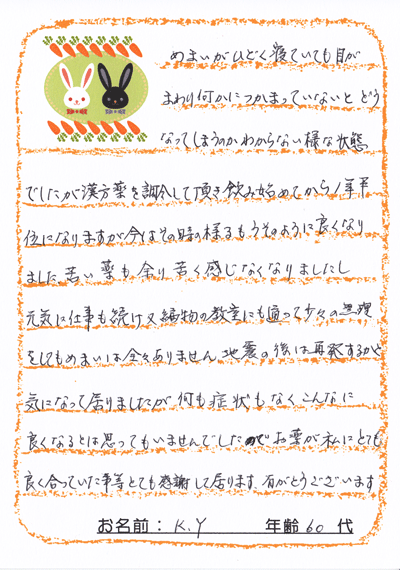 めまいがひどく寝ていても目が
まわり何かにつかまっていないとどう
なってしまうのかわからない様な状態
でしたが漢方薬を調合して頂き飲み始めてから1年半
位になりますが今はその時の様子もうそのように良くなり
ました 苦い薬も余り苦く感じなくなりましたし
元気に仕事も続け又編物の教室にも通って少々の無理
をしてもめまいは全々ありません 地震の後は再発するかと
気になって居りましたが何も症状もなくこんなに
良くなるとは思ってもいませんでしたのでお薬が私にとても
良く合っていた事等とても感謝して居ります 有がとうございます
お名前：K.Y 年齢60代